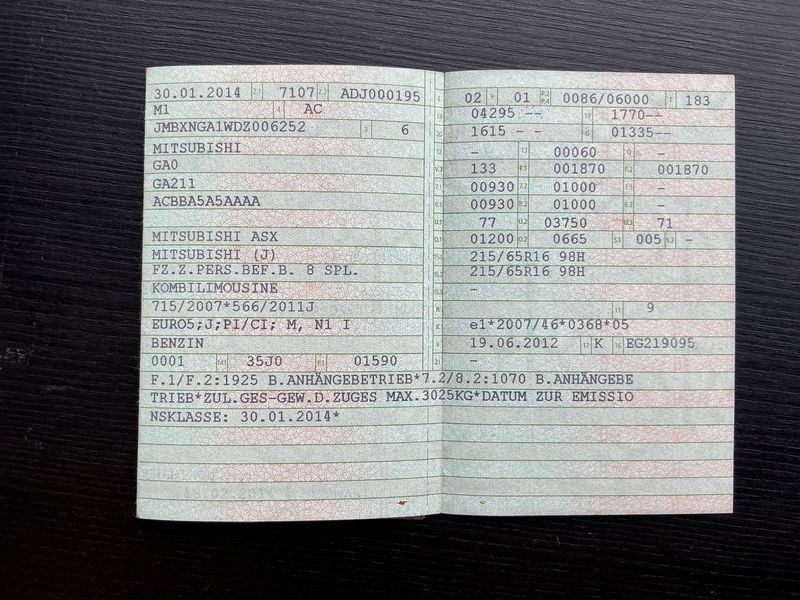 30.01.2014 2.1 7107 2.2 ADJ000195
M1 4 AC
JMBXNGA1WDZ006252 3 6
MITSUBISHI
GA0
GA211
ACBBA5A5AAAA
MITSUBISHI ASX
MITSUBISHI (J)
FZ.Z.PERS.BEF.B. 8 SPL.
KOMBILIMOUSINE
715/2007*566/2011J
EURO5;J;PI/CI; M, N1 I
BENZIN
0001 14.1 35J0 P.1 01590
L 02 9 01 P.2 P.4 0086/06000 T 183
18 04295 -- 19 1770--
20 1615 - - G 01335--
12 - 13 00060 Q -
V.7 133 F.1 001870 F.2 001870
7.1 00930 7.2 01000 -
8.1 00930 8.2 01000 -
U.1 77 U.2 03750 U.3 71
O.1 01200 O.2 0665 S.1 005 S.2 -
15.1 215/65R16 98H
15.2 215/65R16 98H
15.3 -
R 11 9
K e1*2007/46*0368*05
6 19.06.2012 17 K 16 EG219095
21 -
F.1/F.2:1925 B.ANHÄNGEBETRIEB*7.2/8.2:1070 B.ANHÄNGEBE
TRIEB*ZUL.GES-GEW.D.ZUGES MAX.3025KG*DATUM ZUR EMISSIO
NSKLASSE: 30.01.2014*